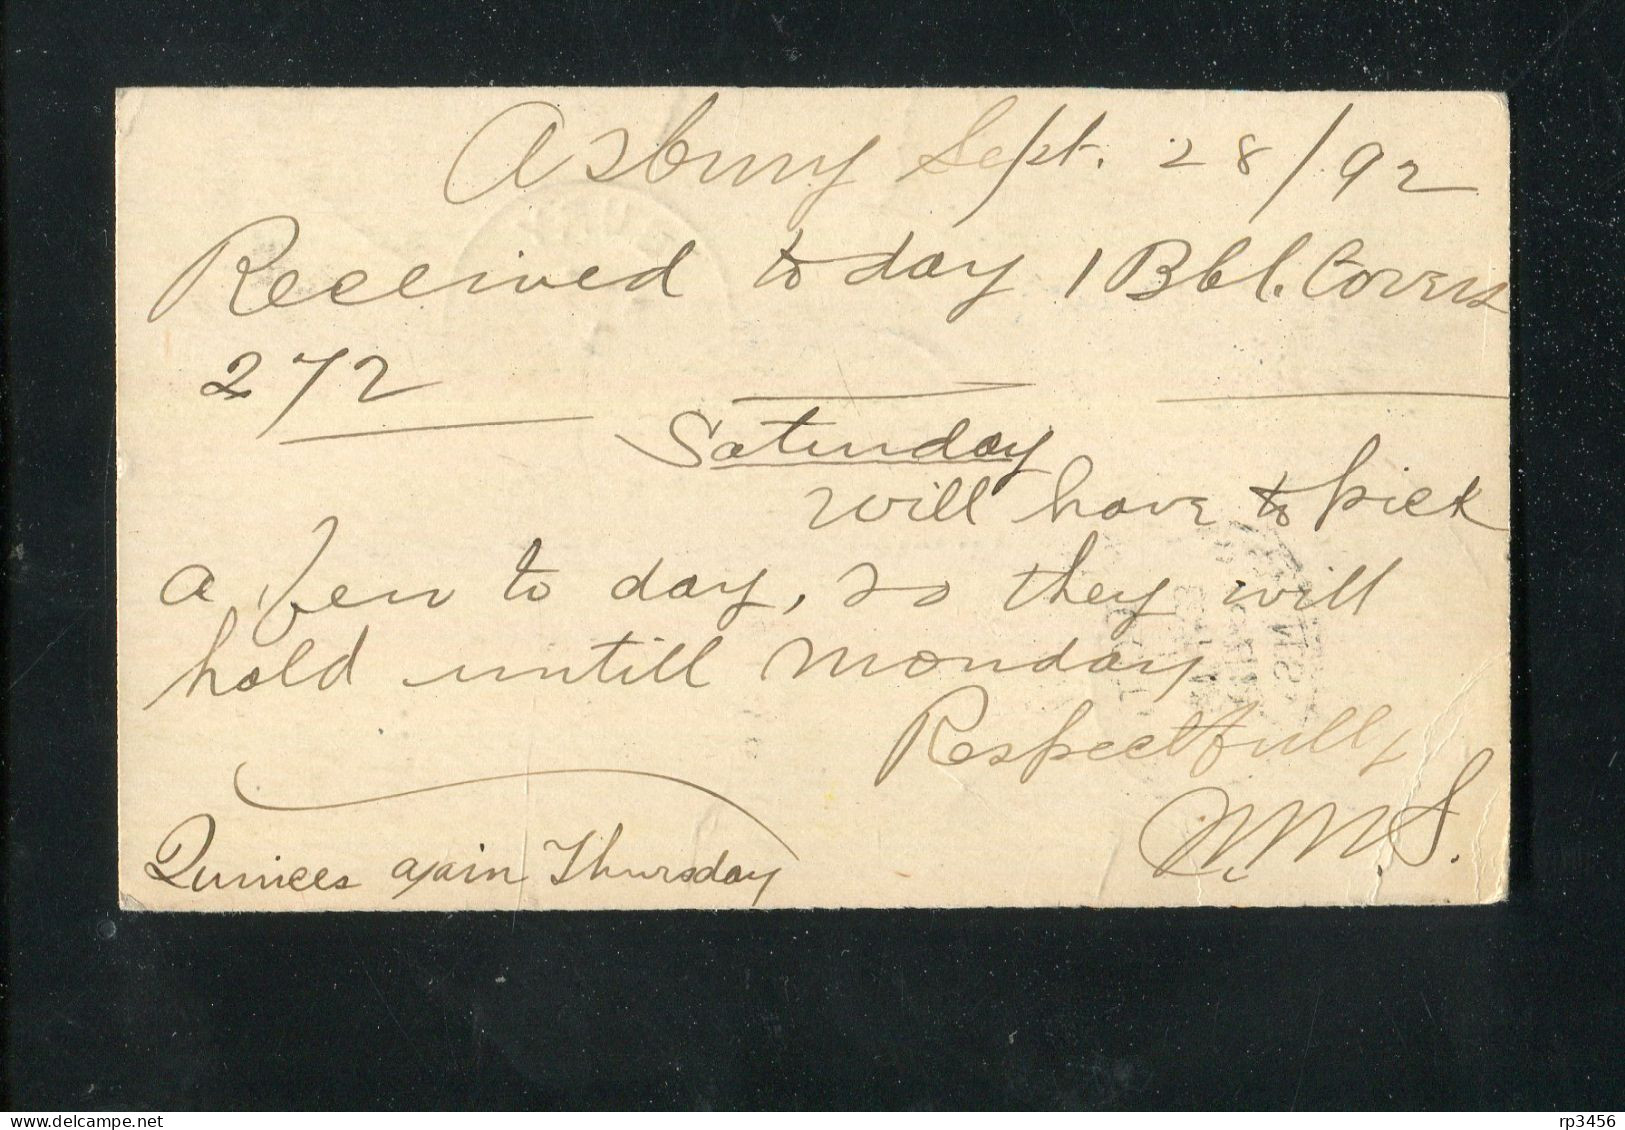 Asbury Sept. 28/92
Received to day 1 Bbl. Covers
272
Saturday
will have to pick
a few to day, so they will
hold untill Monday
Respectfully
W. M. S.
Quinces again Thursday
rp3456